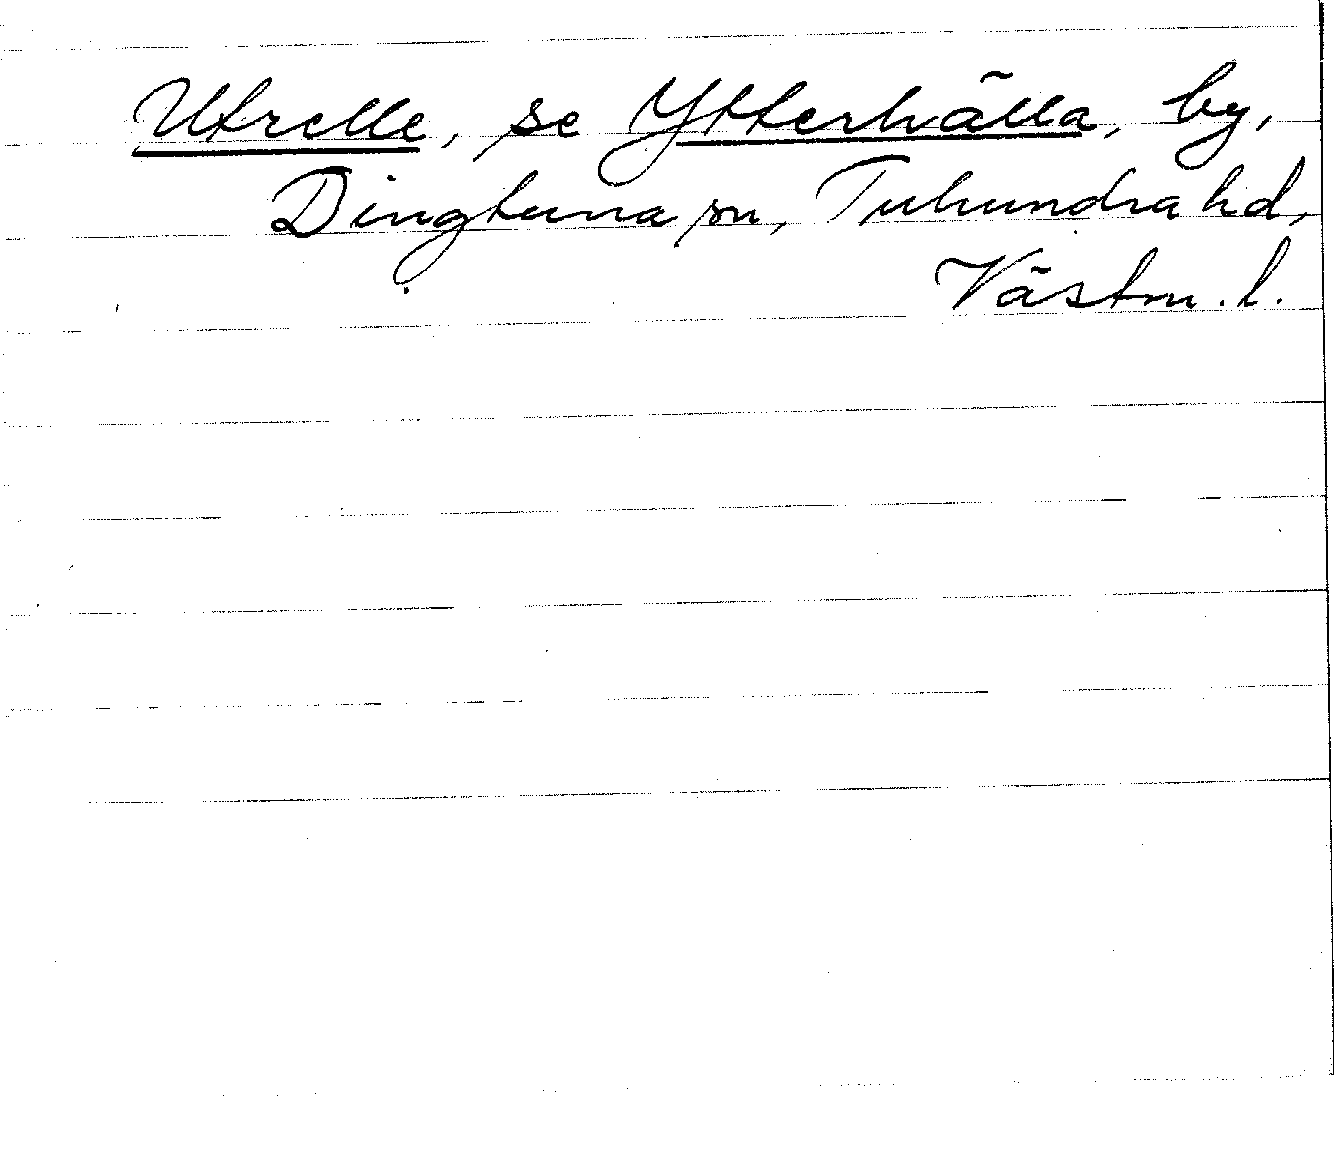 Utrelle, se Ytterhälla, by,
Dingtuna sn, Tuhundra hd,
Västm. l.